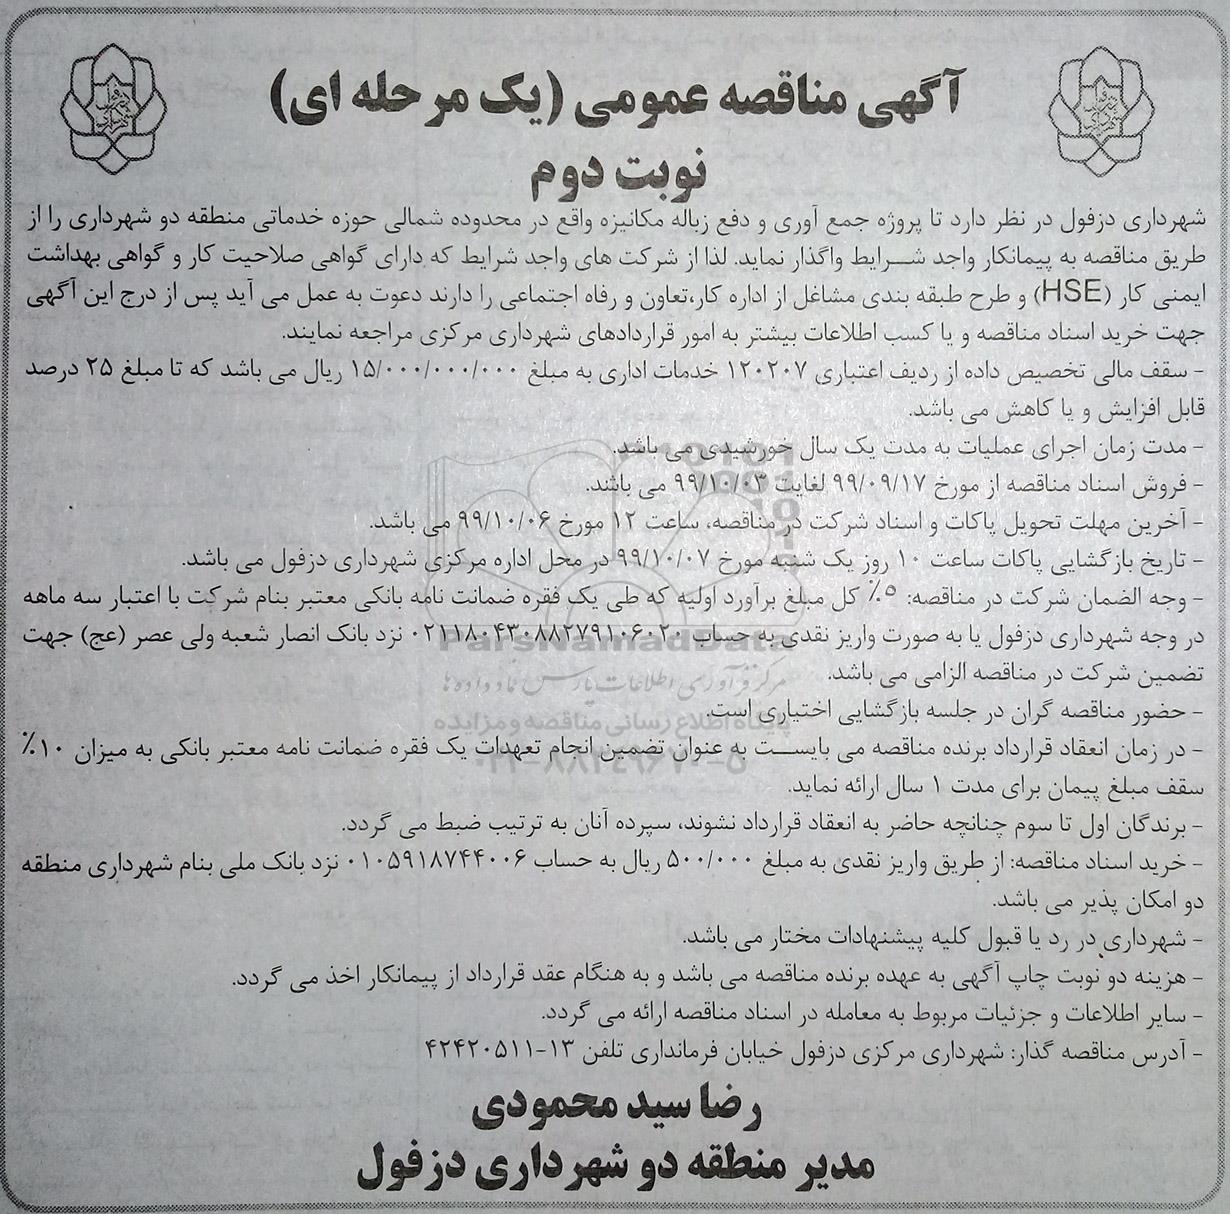 آگهی مناقصه عمومی (یک مرحله ای)
نوبت دوم
شهرداری دزفول در نظر دارد تا پروژه جمع آوری و دفع زباله مکانیزه واقع در محدوده شمالی حوزه خدماتی منطقه دو شهرداری را از
طریق مناقصه به پیمانکار واجد شرایط واگذار نماید. لذا از شرکت های واجد شرایط که دارای گواهی صلاحیت کار و گواهی بهداشت
ایمنی کار (HSE) و طرح طبقه بندی مشاغل از اداره کار،تعاون و رفاه اجتماعی را دارند دعوت به عمل می آید پس از درج این آگهی
جهت خرید اسناد مناقصه و یا کسب اطلاعات بیشتر به امور قراردادهای شهرداری مرکزی مراجعه نمایند.
- سقف مالی تخصیص داده از ردیف اعتباری ۱۲۰۲۰۷ خدمات اداری به مبلغ ۱۵/۰۰۰/۰۰۰/۰۰۰ ریال می باشد که تا مبلغ ۲۵ درصد
قابل افزایش و یا کاهش می باشد.
- مدت زمان اجرای عملیات به مدت یک سال خورشیدی می باشد.
- فروش اسناد مناقصه از مورخ ۹۹/۰۹/۱۷ لغایت ۹۹/۱۰/۰۳ می باشد.
- آخرین مهلت تحویل پاکات و اسناد شرکت در مناقصه، ساعت ۱۲ مورخ ۹۹/۱۰/۰۶ می باشد.
- تاریخ بازگشایی پاکات ساعت ۱۰ روز یک شنبه مورخ ۹۹/۱۰/۰۷ در محل اداره مرکزی شهرداری دزفول می باشد.
- وجه الضمان شرکت در مناقصه: ۵٪ کل مبلغ برآورد اولیه که طی یک فقره ضمانت نامه بانکی معتبر بنام شرکت با اعتبار سه ماهه
در وجه شهرداری دزفول یا به صورت واریز نقدی به حساب ۰۲۱۱۸۰۴۳۰۸۸۲۷۹۱۰۶۰۲۰ نزد بانک انصار شعبه ولی عصر (عج) جهت
تضمین شرکت در مناقصه الزامی می باشد.
- حضور مناقصه گران در جلسه بازگشایی اختیاری است.
- در زمان انعقاد قرارداد برنده مناقصه می بایست به عنوان تضمین انجام تعهدات یک فقره ضمانت نامه معتبر بانکی به میزان ۱۰٪
سقف مبلغ پیمان برای مدت ۱ سال ارائه نماید.
- برندگان اول تا سوم چنانچه حاضر به انعقاد قرارداد نشوند، سپرده آنان به ترتیب ضبط می گردد.
- خرید اسناد مناقصه: از طریق واریز نقدی به مبلغ ۵۰۰/۰۰۰ ریال به حساب ۰۱۰۵۹۱۸۷۴۴۰۰۶ نزد بانک ملی بنام شهرداری منطقه
دو امکان پذیر می باشد.
- شهرداری در رد یا قبول کلیه پیشنهادات مختار می باشد.
- هزینه دو نوبت چاپ آگهی به عهده برنده مناقصه می باشد و به هنگام عقد قرارداد از پیمانکار اخذ می گردد.
- سایر اطلاعات و جزئیات مربوط به معامله در اسناد مناقصه ارائه می گردد.
- آدرس مناقصه گذار: شهرداری مرکزی دزفول خیابان فرمانداری تلفن ۱۳-۴۲۴۲۰۵۱۱
رضا سید محمودی
مدیر منطقه دو شهرداری دزفول
ParsNamadData
مرکز فرآوری اطلاعات پارس نماد داده ها
پایگاه اطلاع رسانی مناقصه و مزایده
۰۲۱-۸۸۳۴۹۶۷۰-۵